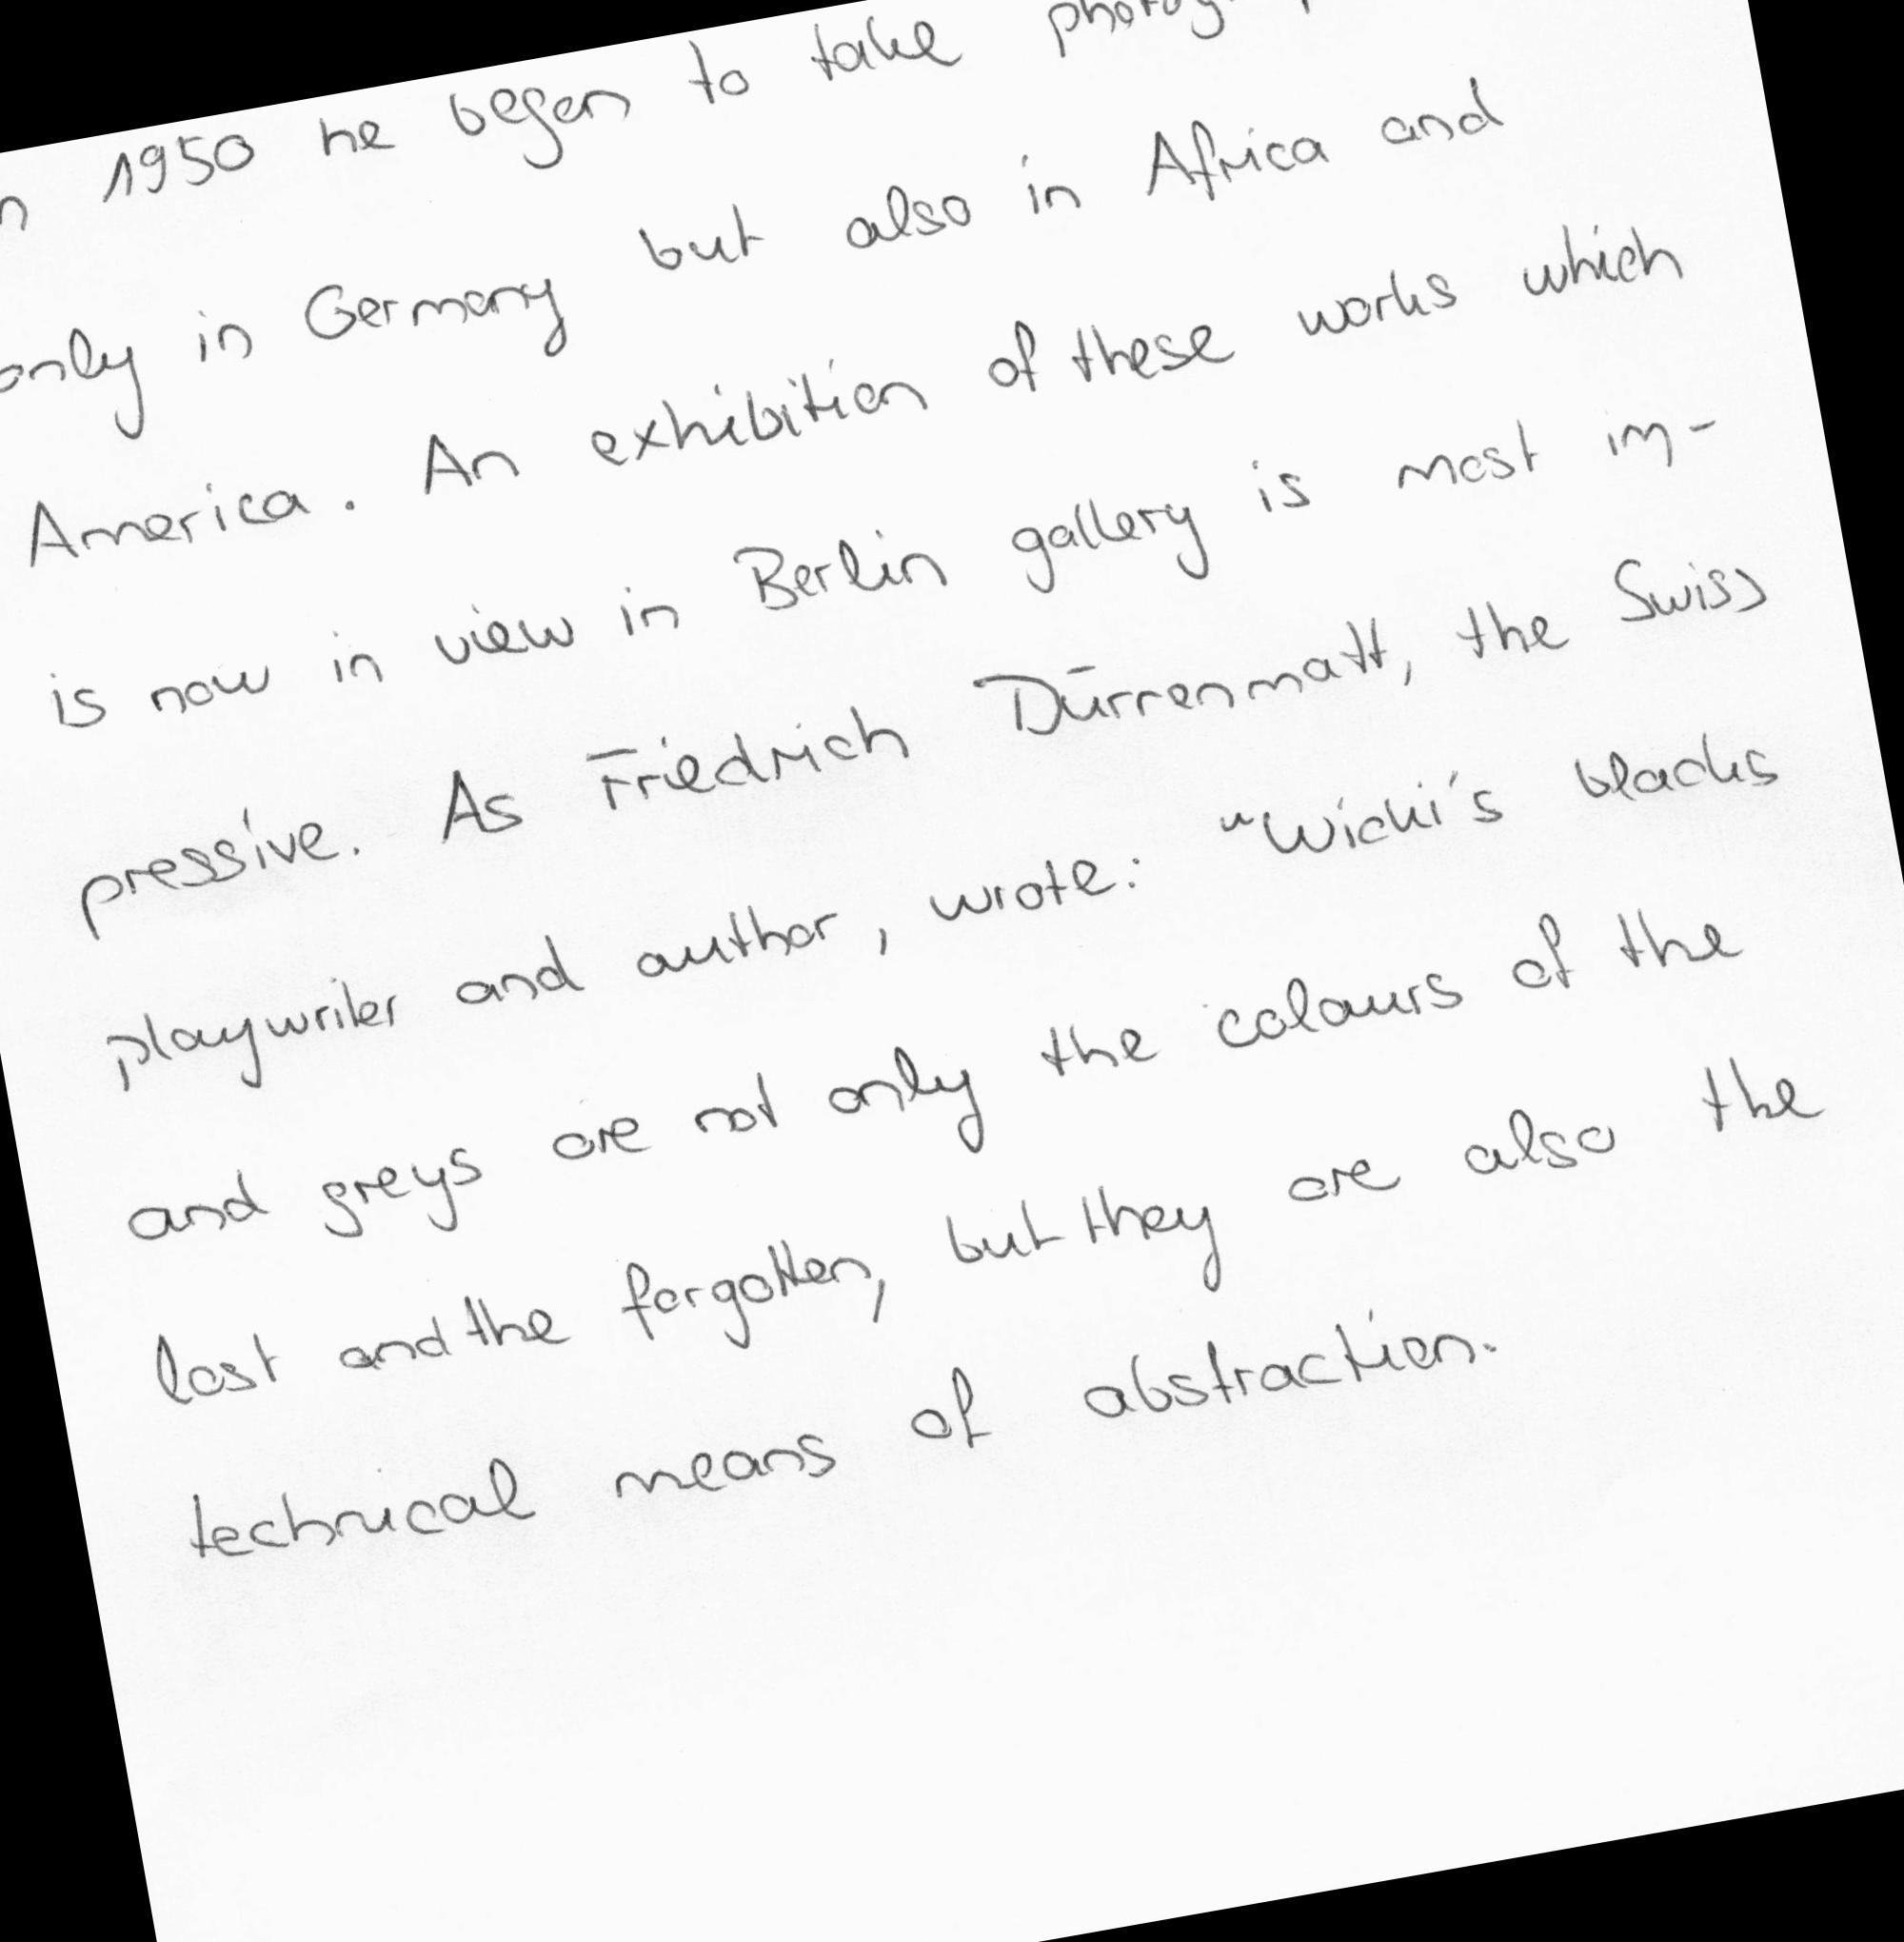 1950 he began to take
only in Germany but also in Africa and
America. An exhibition of these works which
is now in view in Berlin gallery is most im-
pressive. As Friedrich Dürrenmatt, the Swiss
playwriter and author, wrote: "Wicki's blacks
and greys are not only the colours of the
lost and the forgotten, but they are also the
technical means of abstraction.